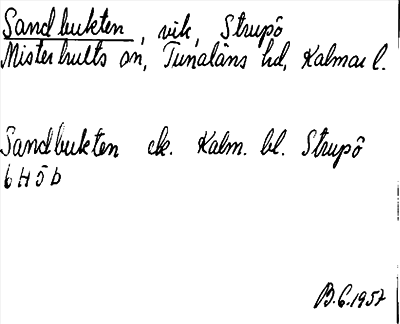 Sandbukten, vik, Strupö
Misterhults sn, Tunaläns hd, Kalmar l.
Sandbukten ek. Kalm. bl. Strupö
6H5b
B.G. 1957